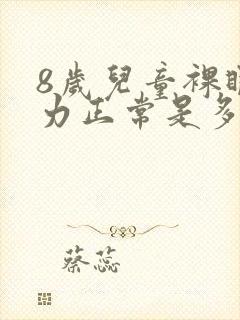 8歲兒童裸眼
力正常是多
蔡蕊